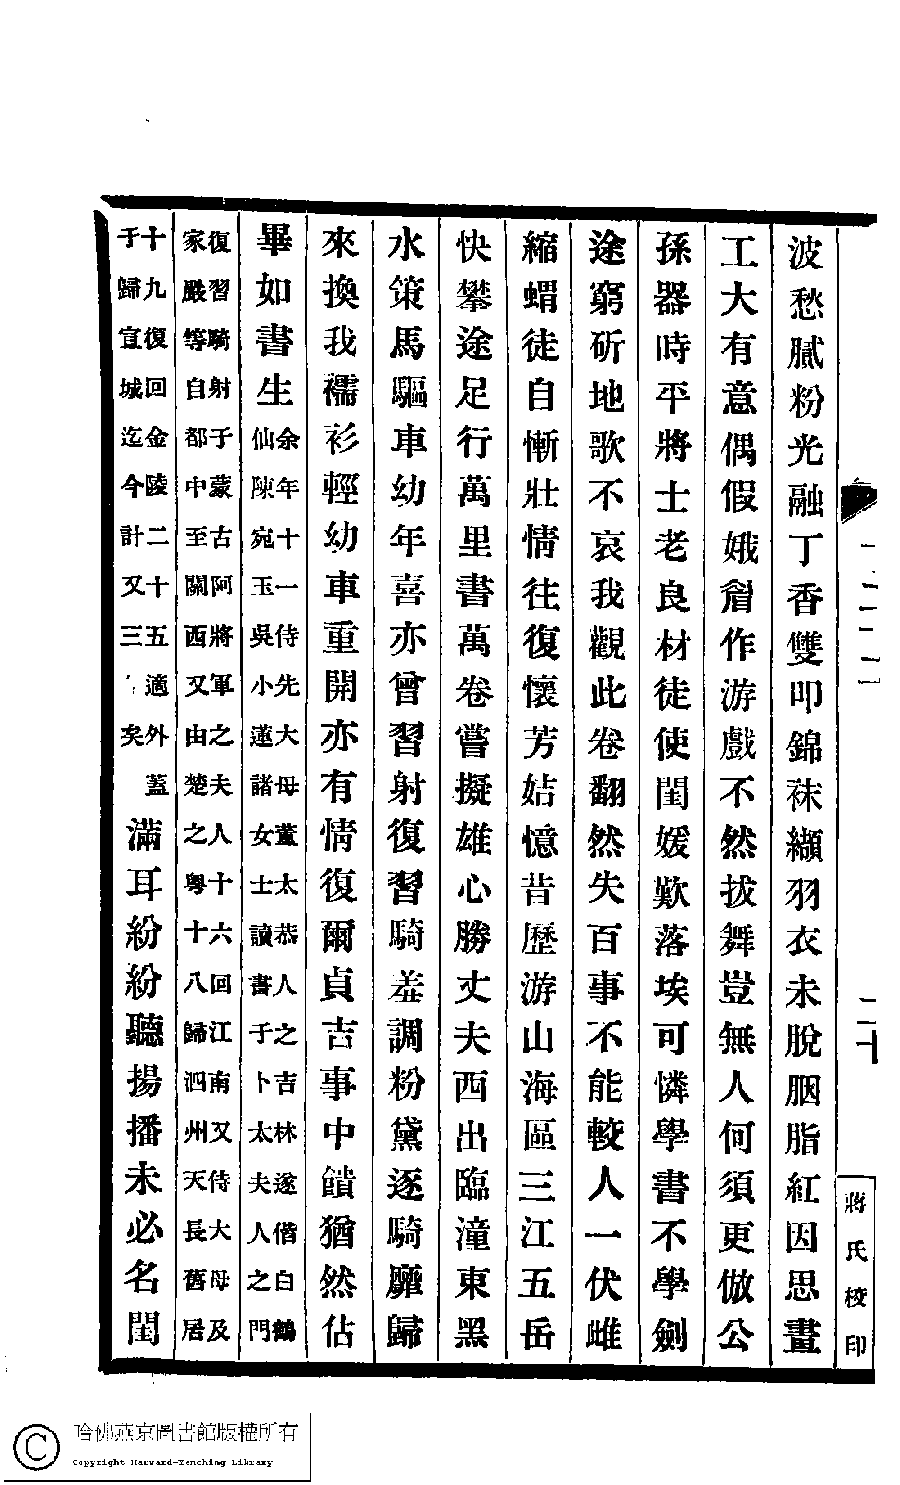 波愁膩粉光融丁香雙叩錦袜纈羽衣未脫胭脂紅因思畫
工大有意偶假娥眉作游戲不然拔舞豈無人何須更倣公
孫器時平將士老良材徒使閨媛歎落埃可憐學書不學劍
途窮斫地歌不哀我觀此卷翻然失百事不能較人一伏雌
縮蝟徒自慚壯情往復懷芳姞憶昔歷游山海區三江五岳
快攀途足行萬里書萬卷嘗擬雄心勝丈夫西出臨潼東黑
水策馬驅車幼年喜亦曾習射復習騎羞調粉黛逐騎靡歸
來換我襦衫輕幼車重開亦有情復爾貞吉事中饋猶然佔
畢如書生
余年十一侍先大母董太恭人之吉林遂偕白鶴
仙陳宛玉吳小蓮諸女士讀書于卜太夫人之門
復習騎射于蒙古阿將軍之夫人十六回江南又侍大母及
家嚴等自都中至關西又由楚之粵十八歸泗州天長舊居
十九復回金陵二十五適外蓋
于歸宣城迄今計又三矣
滿耳紛紛聽揚播未必名閨
二十
蔣氏校印
哈佛燕京圖書館版權所有
Copyright Harvard-Yenching Library